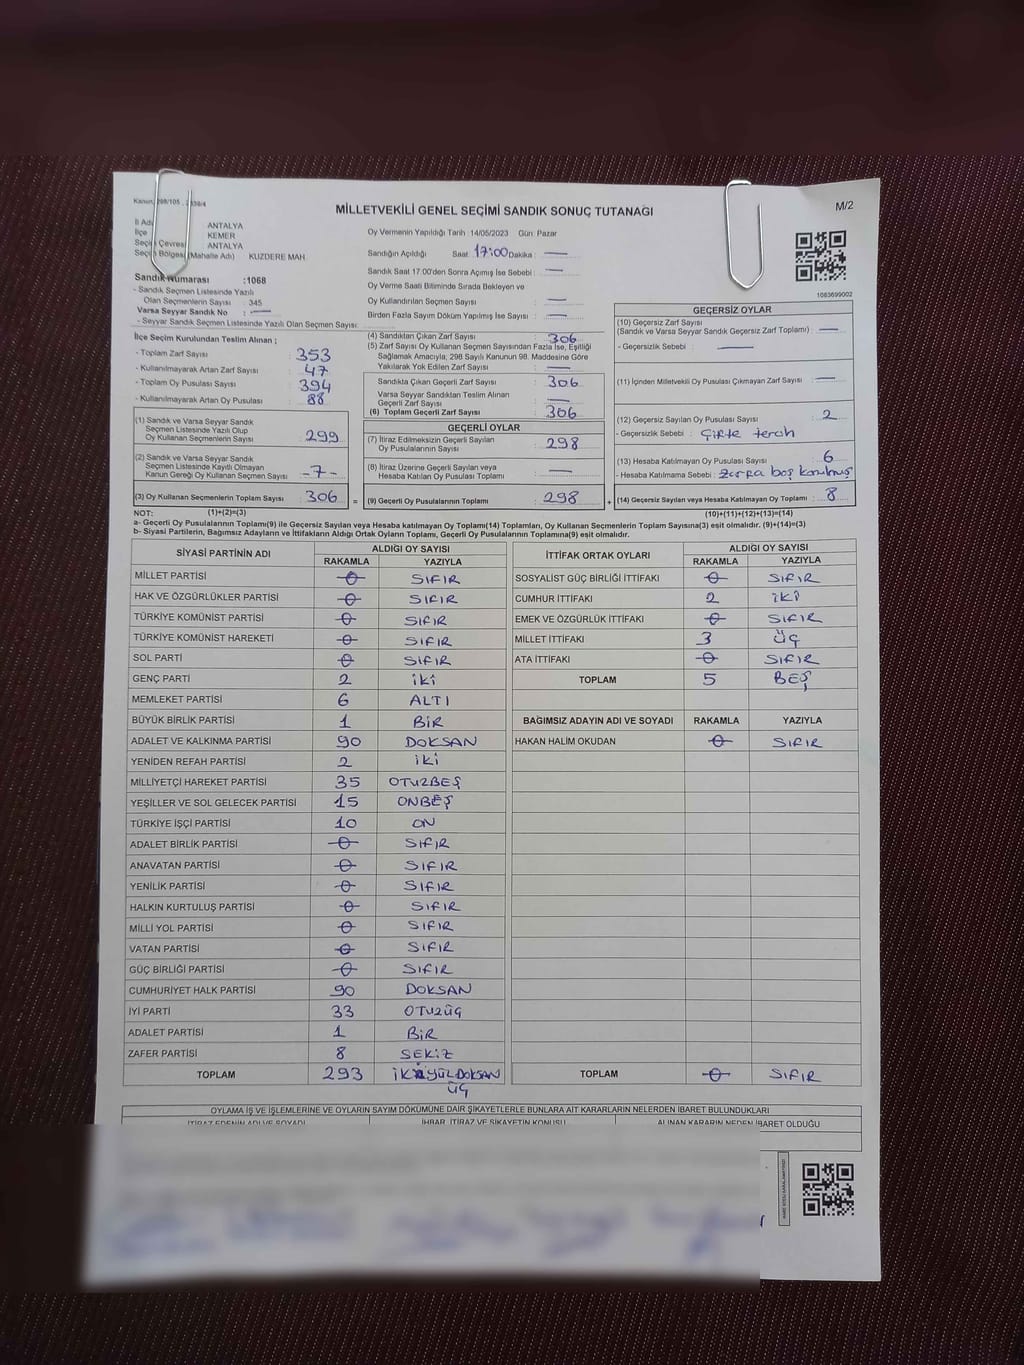 Kanun: 298/105
MİLLETVEKİLİ GENEL SEÇİMİ SANDIK SONUÇ TUTANAĞI
M/2
İl Adı ANTALYA
İlçe KEMER
Seçim Çevresi ANTALYA
Seçim Bölgesi (Mahalle Adı) KUZDERE MAH.
Sandık Numarası :1068
- Sandık Seçmen Listesinde Yazılı
Olan Seçmenlerin Sayısı : 345
Varsa Seyyar Sandık No : —
- Seyyar Sandık Seçmen Listesinde Yazılı Olan Seçmen Sayısı:
İlçe Seçim Kurulundan Teslim Alınan ;
- Toplam Zarf Sayısı : 353
- Kullanılmayarak Artan Zarf Sayısı : 47
- Toplam Oy Pusulası Sayısı : 394
- Kullanılmayarak Artan Oy Pusulası : 88
(1) Sandık ve Varsa Seyyar Sandık
Seçmen Listesinde Yazılı Olup
Oy Kullanan Seçmenlerin Sayısı : 299
(2) Sandık ve Varsa Seyyar Sandık
Seçmen Listesinde Kayıtlı Olmayan
Kanun Gereği Oy Kullanan Seçmen Sayısı : -7-
(3) Oy Kullanan Seçmenlerin Toplam Sayısı : 306 =
Oy Vermenin Yapıldığı Tarih :14/05/2023 Gün: Pazar
Sandığın Açıldığı Saat: 17:00 Dakika : —
Sandık Saat 17.00'den Sonra Açımış İse Sebebi : —
Oy Verme Saati Bitiminde Sırada Bekleyen ve
Oy Kullandırılan Seçmen Sayısı : —
Birden Fazla Sayım Döküm Yapılmış İse Sayısı : —
(4) Sandıktan Çıkan Zarf Sayısı : 306
(5) Zarf Sayısı Oy Kullanan Seçmen Sayısından Fazla İse, Eşitliği
Sağlamak Amacıyla, 298 Sayılı Kanunun 98. Maddesine Göre
Yakılarak Yok Edilen Zarf Sayısı : —
Sandıkta Çıkan Geçerli Zarf Sayısı : 306
Varsa Seyyar Sandıktan Teslim Alınan
Geçerli Zarf Sayısı : —
(6) Toplam Geçerli Zarf Sayısı : 306
GEÇERLİ OYLAR
(7) İtiraz Edilmeksizin Geçerli Sayılan
Oy Pusulalarının Sayısı : 298
(8) İtiraz Üzerine Geçerli Sayılan veya
Hesaba Katılan Oy Pusulaları Toplamı : —
(9) Geçerli Oy Pusulalarının Toplamı : 298 +
1083699002
GEÇERSİZ OYLAR
(10) Geçersiz Zarf Sayısı
(Sandık ve Varsa Seyyar Sandık Geçersiz Zarf Toplamı) : —
- Geçersizlik Sebebi : —
(11) İçinden Milletvekili Oy Pusulası Çıkmayan Zarf Sayısı : —
(12) Geçersiz Sayılan Oy Pusulası Sayısı : 2
- Geçersizlik Sebebi : Çifte tercih
(13) Hesaba Katılmayan Oy Pusulası Sayısı : 6
- Hesaba Katılmama Sebebi : Zarfa boş konulmuş
(14) Geçersiz Sayılan veya Hesaba Katılmayan Oy Toplamı : 8
NOT: (1)+(2)=(3) (10)+(11)+(12)+(13)=(14)
a- Geçerli Oy Pusulalarının Toplamı(9) ile Geçersiz Sayılan veya Hesaba katılmayan Oy Toplamı(14) Toplamları, Oy Kullanan Seçmenlerin Toplam Sayısına(3) eşit olmalıdır. (9)+(14)=(3)
b- Siyasi Partilerin, Bağımsız Adayların ve İttifakların Aldığı Ortak Oyların Toplamı, Geçerli Oy Pusulalarının Toplamına(9) eşit olmalıdır.
SİYASİ PARTİNİN ADI ALDIĞI OY SAYISI
RAKAMLA YAZIYLA
MİLLET PARTİSİ 0 SIFIR
HAK VE ÖZGÜRLÜKLER PARTİSİ 0 SIFIR
TÜRKİYE KOMÜNİST PARTİSİ 0 SIFIR
TÜRKİYE KOMÜNİST HAREKETİ 0 SIFIR
SOL PARTİ 0 SIFIR
GENÇ PARTİ 2 İKİ
MEMLEKET PARTİSİ 6 ALTI
BÜYÜK BİRLİK PARTİSİ 1 BİR
ADALET VE KALKINMA PARTİSİ 90 DOKSAN
YENİDEN REFAH PARTİSİ 2 İKİ
MİLLİYETÇİ HAREKET PARTİSİ 35 OTUZBEŞ
YEŞİLLER VE SOL GELECEK PARTİSİ 15 ONBEŞ
TÜRKİYE İŞÇİ PARTİSİ 10 ON
ADALET BİRLİK PARTİSİ 0 SIFIR
ANAVATAN PARTİSİ 0 SIFIR
YENİLİK PARTİSİ 0 SIFIR
HALKIN KURTULUŞ PARTİSİ 0 SIFIR
MİLLİ YOL PARTİSİ 0 SIFIR
VATAN PARTİSİ 0 SIFIR
GÜÇ BİRLİĞİ PARTİSİ 0 SIFIR
CUMHURİYET HALK PARTİSİ 90 DOKSAN
İYİ PARTİ 33 OTUZÜÇ
ADALET PARTİSİ 1 BİR
ZAFER PARTİSİ 8 SEKİZ
TOPLAM 293 İKİYÜZDOKSAN
ÜÇ
İTTİFAK ORTAK OYLARI ALDIĞI OY SAYISI
RAKAMLA YAZIYLA
SOSYALİST GÜÇ BİRLİĞİ İTTİFAKI 0 SIFIR
CUMHUR İTTİFAKI 2 İKİ
EMEK VE ÖZGÜRLÜK İTTİFAKI 0 SIFIR
MİLLET İTTİFAKI 3 ÜÇ
ATA İTTİFAKI 0 SIFIR
TOPLAM 5 BEŞ
BAĞIMSIZ ADAYIN ADI VE SOYADI RAKAMLA YAZIYLA
HAKAN HALİM OKUDAN 0 SIFIR
TOPLAM 0 SIFIR
OYLAMA İŞ VE İŞLEMLERİNE VE OYLARIN SAYIM DÖKÜMÜNE DAİR ŞİKAYETLERLE BUNLARA AİT KARARLARIN NELERDEN İBARET BULUNDUKLARI
İTİRAZ EDENİN ADI VE SOYADI İHBAR, İTİRAZ VE ŞİKAYETİN KONUSU ALINAN KARARIN NEDEN İBARET OLDUĞU